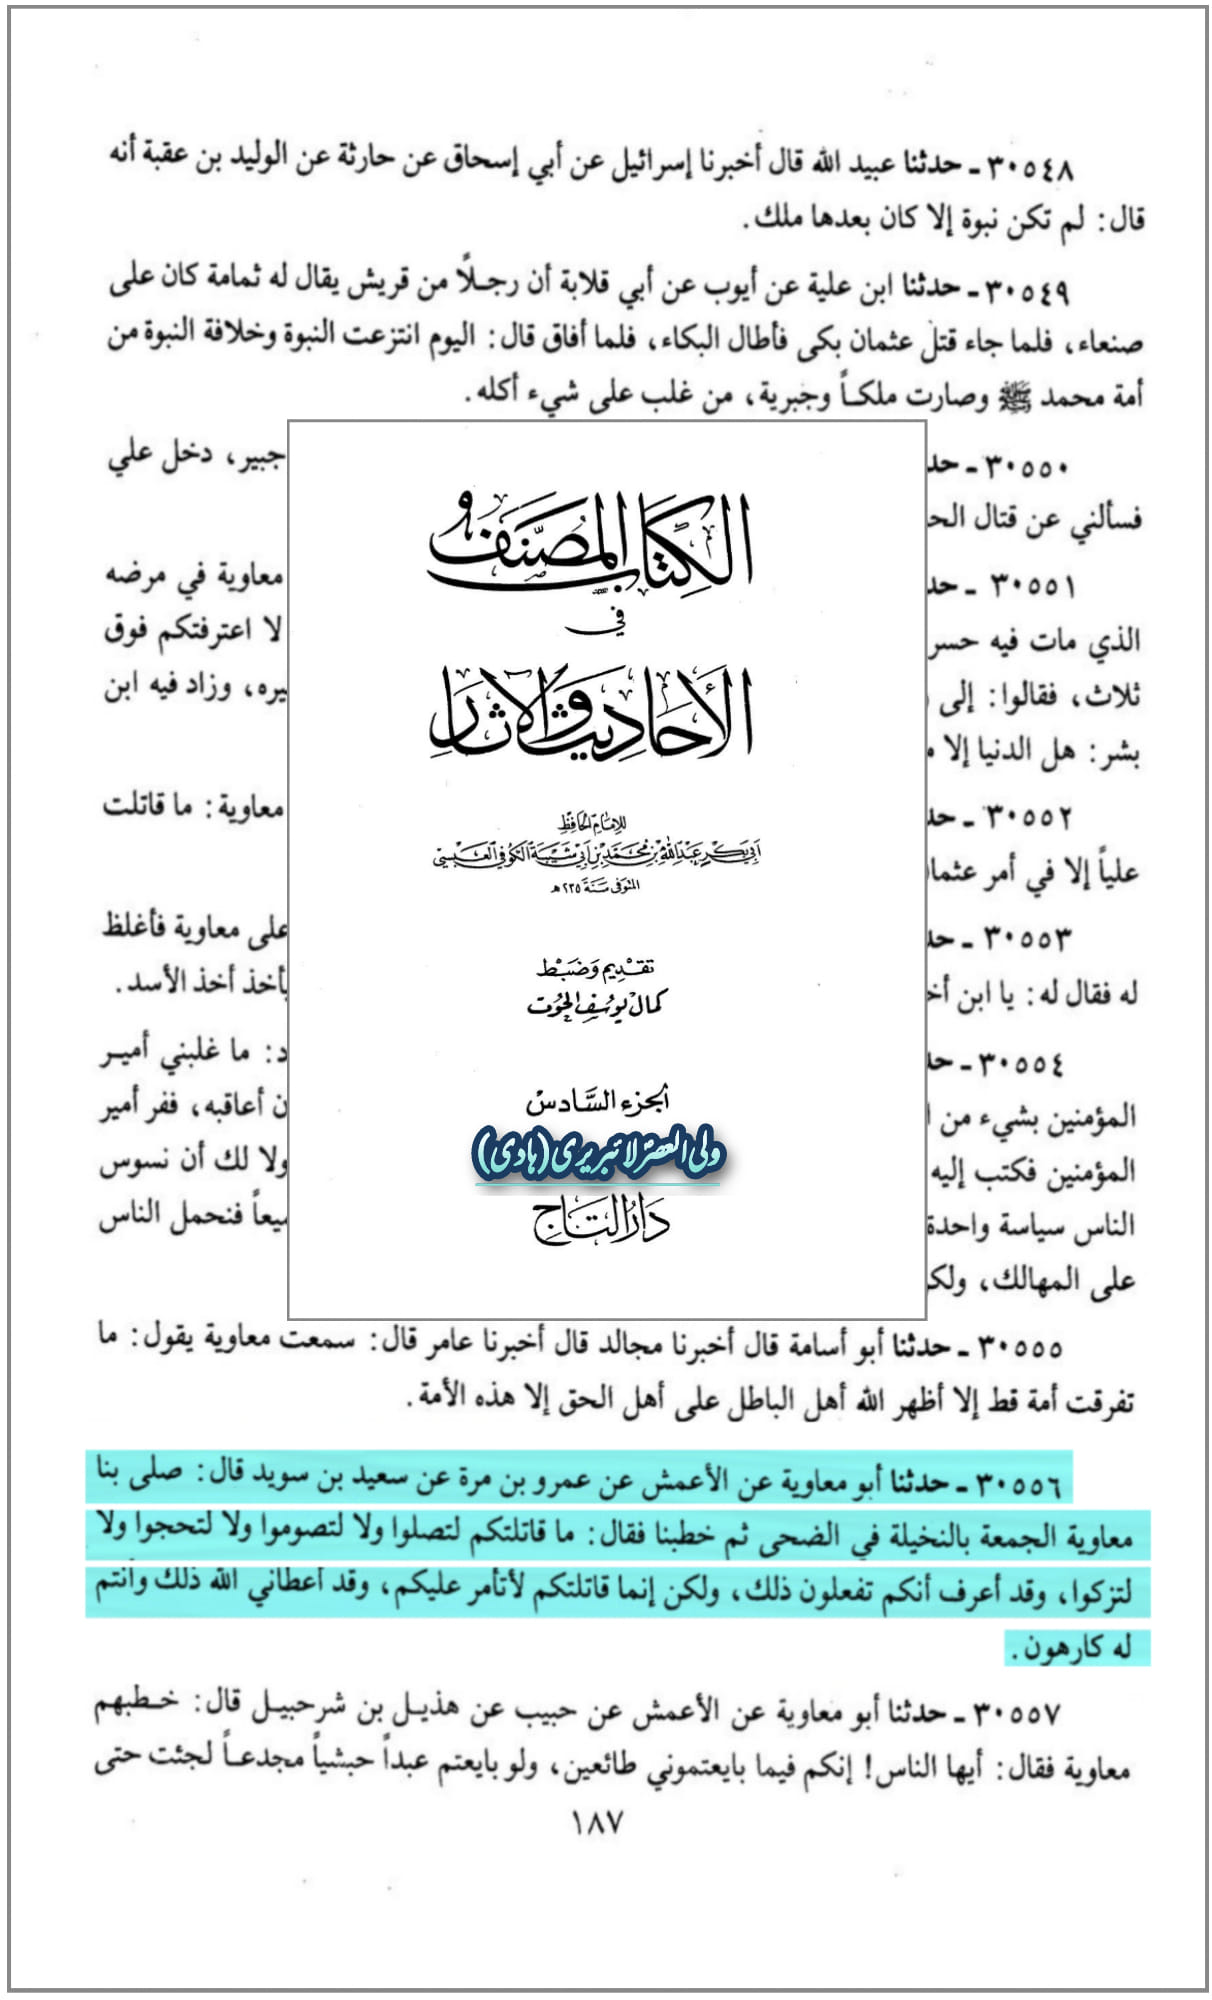 ٣٠٥٤٨ ـ حدثنا عبيد الله قال أخبرنا إسرائيل عن أبي إسحاق عن حارثة عن الوليد بن عقبة أنه
قال: لم تكن نبوة إلا كان بعدها ملك.
٣٠٥٤٩ ـ حدثنا ابن علية عن أيوب عن أبي قلابة أن رجلاً من قريش يقال له ثمامة كان على
صنعاء، فلما جاء قتل عثمان بكى فأطال البكاء، فلما أفاق قال: اليوم انتزعت النبوة وخلافة النبوة من
أمة محمد ﷺ وصارت ملكاً وجبرية، من غلب على شيء أكله.
٣٠٥٥٠ ـ حد جبير، دخل علي
فسألني عن قتال الح
٣٠٥٥١ ـ حد معاوية في مرضه
الذي مات فيه حسر لا اعترفتكم فوق
ثلاث، فقالوا: إلى يره، وزاد فيه ابن
بشر: هل الدنيا إلا
٣٠٥٥٢ ـ حد معاوية: ما قاتلت
علياً إلا في أمر عثما
٣٠٥٥٣ ـ حد على معاوية فأغلظ
له فقال له: يا ابن أخ يأخذ أخذ الأسد.
٣٠٥٥٤ ـ حد د: ما غلبني أمير
المؤمنين بشيء من ن أعاقبه، ففر أمير
المؤمنين فكتب إليه ولا لك أن نسوس
الناس سياسة واحدة ميعاً فنحمل الناس
على المهالك، ولكن
الكتاب المصنف
في
الأحاديث والآثار
للإمام الحافظ
أبي بكر عبد الله بن محمد بن أبي شيبة الكوفي العبسي
المتوفى سنة ٢٣٥ هـ
تقديم وضبط
كمال يوسف الحوت
الجزء السادس
ولی العصر لا تبریزی (هادی)
دار التاج
٣٠٥٥٥ ـ حدثنا أبو أسامة قال أخبرنا مجالد قال أخبرنا عامر قال: سمعت معاوية يقول: ما
تفرقت أمة قط إلا أظهر الله أهل الباطل على أهل الحق إلا هذه الأمة.
٣٠٥٥٦ ـ حدثنا أبو معاوية عن الأعمش عن عمرو بن مرة عن سعيد بن سويد قال: صلى بنا
معاوية الجمعة بالنخيلة في الضحى ثم خطبنا فقال: ما قاتلتكم لتصلوا ولا لتصوموا ولا لتحجوا ولا
لتزكوا، وقد أعرف أنكم تفعلون ذلك، ولكن إنما قاتلتكم لأتأمر عليكم، وقد أعطاني الله ذلك وأنتم
له كارهون.
٣٠٥٥٧ ـ حدثنا أبو معاوية عن الأعمش عن حبيب عن هذيل بن شرحبيل قال: خطبهم
معاوية فقال: أيها الناس! إنكم فيما بايعتموني طائعين، ولو بايعتم عبداً حبشياً مجدعاً لجئت حتى
١٨٧